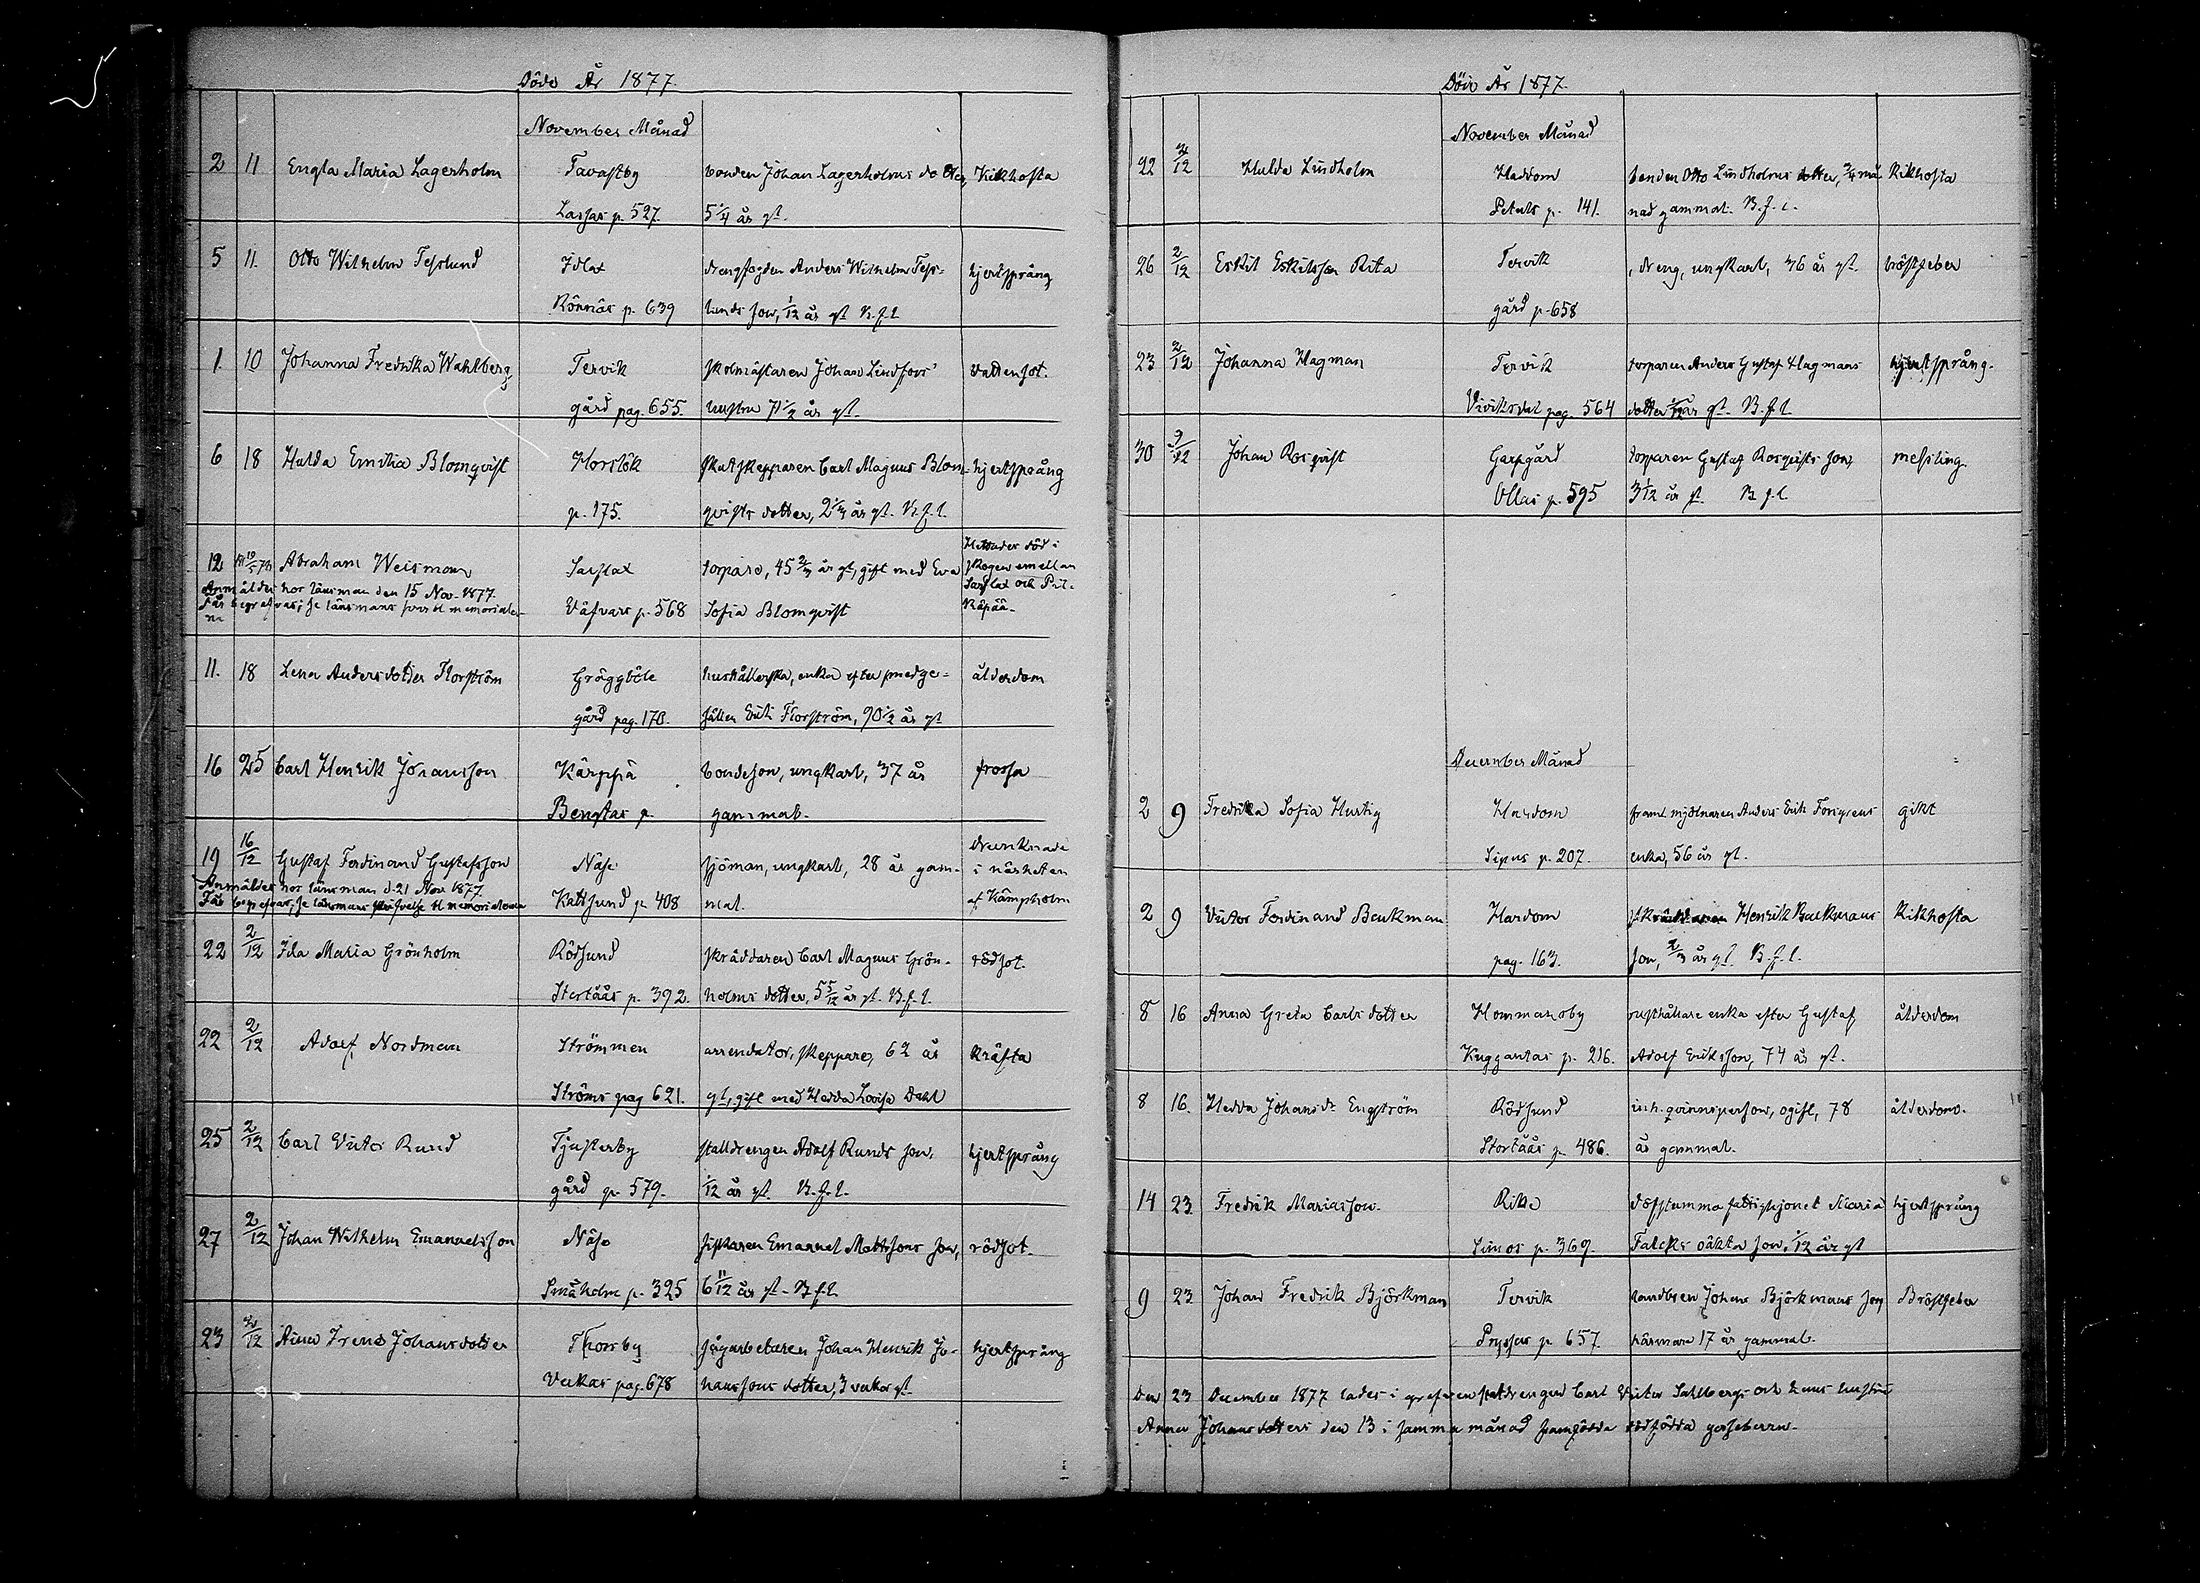 Döde År 1877.
November Månad
2 11 Engla Maria Lagerholm Tavastby bonden Johan Lagerholms dotter, Kikhosta
Lassas p. 527. 5 1/4 år gl.
5 11. Otto Wilhelm Teslund drengfogden Anders Wilhelm Tess- hjertsprång
Rönnäs p. 639 lunds son, 1/12 år gl. B.f.l.
1. 10 Johanna Fredrika Wahlberg Tervik skolmästaren Johan Lindfors' vattensot.
gård pag. 655. hustru 71 1/2 år gl.
6 18 Hulda Emilia Blomqvist Horslök skutskepparen Carl Magnus Blom- hjertsprång
p. 175. qvists dotter, 2 1/4 år gl. B.f.l.
12 Abraham Weisman Sarflax torpare, 45 år gl, gift med Eva Hittades död i skogen emellan
Anmäldes hor länsman den 15 Nov. 1877. Sarflax och
Får begrafvas; se länsmans Väfvars p. 568 Sofia Blomqvist
11. 18 Lena Andersdotter Florström Gräggböle hushållerska, enka efter smedge- ålderdom
gård pag. 170. sällen Erik Florström, 90 1/2 år gl
16 25 Carl Henrik Johansson Kärppä bondeson, ungkarl, 37 år frossa
Bengtas p. gammal.
19 16/12 Gustaf Ferdinand Gustafsson Näse sjöman, ungkarl, 28 år gam- drunknade i närheten
Anmäldes hor länsman d. 21 Nov 1877. Kattsund p. 408 mal. af Kämpholm
22 2/12 Ida Maria Grönholm Rödsund skräddaren Carl Magnus Grön- rödsot.
Stortåås p. 392. holms dotter, 5 5/12 år gl. B.f.l.
22 2/12 Adolf Nordman Strömmen arrendator, skeppare, 62 år kräfta
Ströms pag 621. gl, gift med Hedda Lovisa Dahl
25 2/12 Carl Victor Rund Tjusterby stalldrengen Adolf Runds son, hjertsprång
gård p. 579. 1/12 år gl. B.f.l.
27 2/12 Johan Wilhelm Emanuelsson Näse fiskaren Emanuel Mattssons son, rödsot.
Småholm p. 325 6 11/12 år gl. B.f.l.
23 2/12 Aina Irene Johansdotter Thorsby sågarbetaren Johan Henrik Jo- hjertsprång
Veckas pag. 678 hanssons dotter, 3 veckor gl.
Döde År 1877.
November Månad
22 2/12 Hulda Lindholm Hardom bonden Otto Lindholms dotter, 3/4 må- Kikhosta
Petals p. 141. nad gammal. B.f.l.
26 2/12 Eskil Eskilsson Rita Tervik dreng, ungkarl, 36 år gl. bröstfeber
gård p. 658
23 2/12 Johanna Hagman Tervik torparen Anders Gustaf Hagmans hjertsprång.
Viviksdal pag. 564 dotter 1/12 år gl. B.f.l.
30 9/12 Johan Rosqvist Garpgård torparen Gustaf Rosqvists son, messling.
Ollas p. 595 3 1/12 år gl. B.f.l.
December Månad
2 9 Fredrika Sofia Hurtig Hardom framl. mjölnaren Anders Erik Forsgrens gikt
Sipus p. 207. enka, 56 år gl.
2 9 Victor Ferdinand Backman Hardom Henrik Backmans Kikhosta
pag. 163. son, 2/3 år gl. B.f.l.
8 16 Anna Greta Carlsdotter Hommansby rusthållare enka efter Gustaf ålderdom
Kuggantas p. 216. Adolf Eriksson, 74 år gl.
8 16. Hedda Johansdr Engström Rödsund inh. qvinnsperson, ogift, 78 ålderdom.
Stortåås p. 486. år gammal.
14 23. Fredrik Mariasson. döfstumma fattighjonet Maria hjertsprång
Simos p. 369. Falcks oäkta son, 1/12 år gl
9 23 Johan Fredrik Björkman Tervik landboen Johan Björkmans son Bröstfeber
Pryssas p. 657. närmare 17 år gammal.
Den 23 December 1877 lades i grafven stalldrengen Carl Victor Sahlbergs och hans hustru
Anna Johansdotters den 13 i samma månad framfödda dödfödda gossebarn.